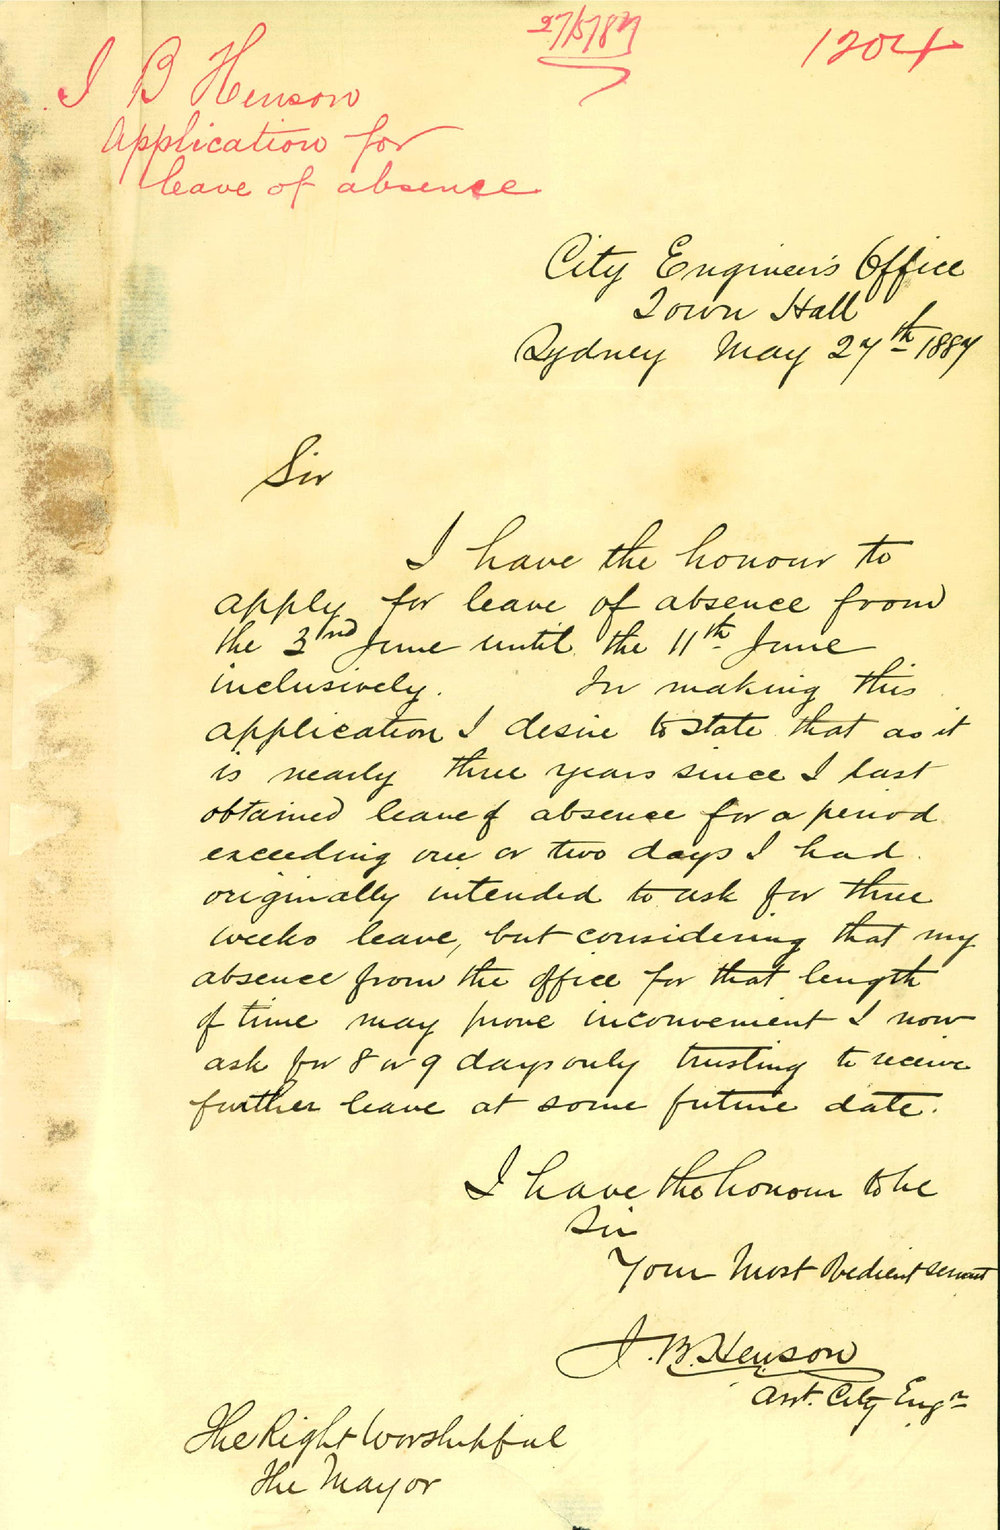 27/5/87
1204
J B Henson
Application for
leave of absence
City Engineer's Office
Town Hall
Sydney May 27th 1887
Sir
I have the honour to
apply for leave of absence from
the 3nd June until the 11th June
inclusively. In making this
application I desire to state that as it
is nearly three years since I last
obtained leave of absence for a period
exceeding one or two days I had
originally intended to ask for three
weeks leave, but considering that my
absence from the office for that length
of time may prove inconvenient I now
ask for 8 or 9 days only trusting to receive
further leave at some future date.
I have the honour to be
Sir
Your Most Obedient Servant
J. B. Henson
Asst. City Engr
The Right Worshipful
The Mayor